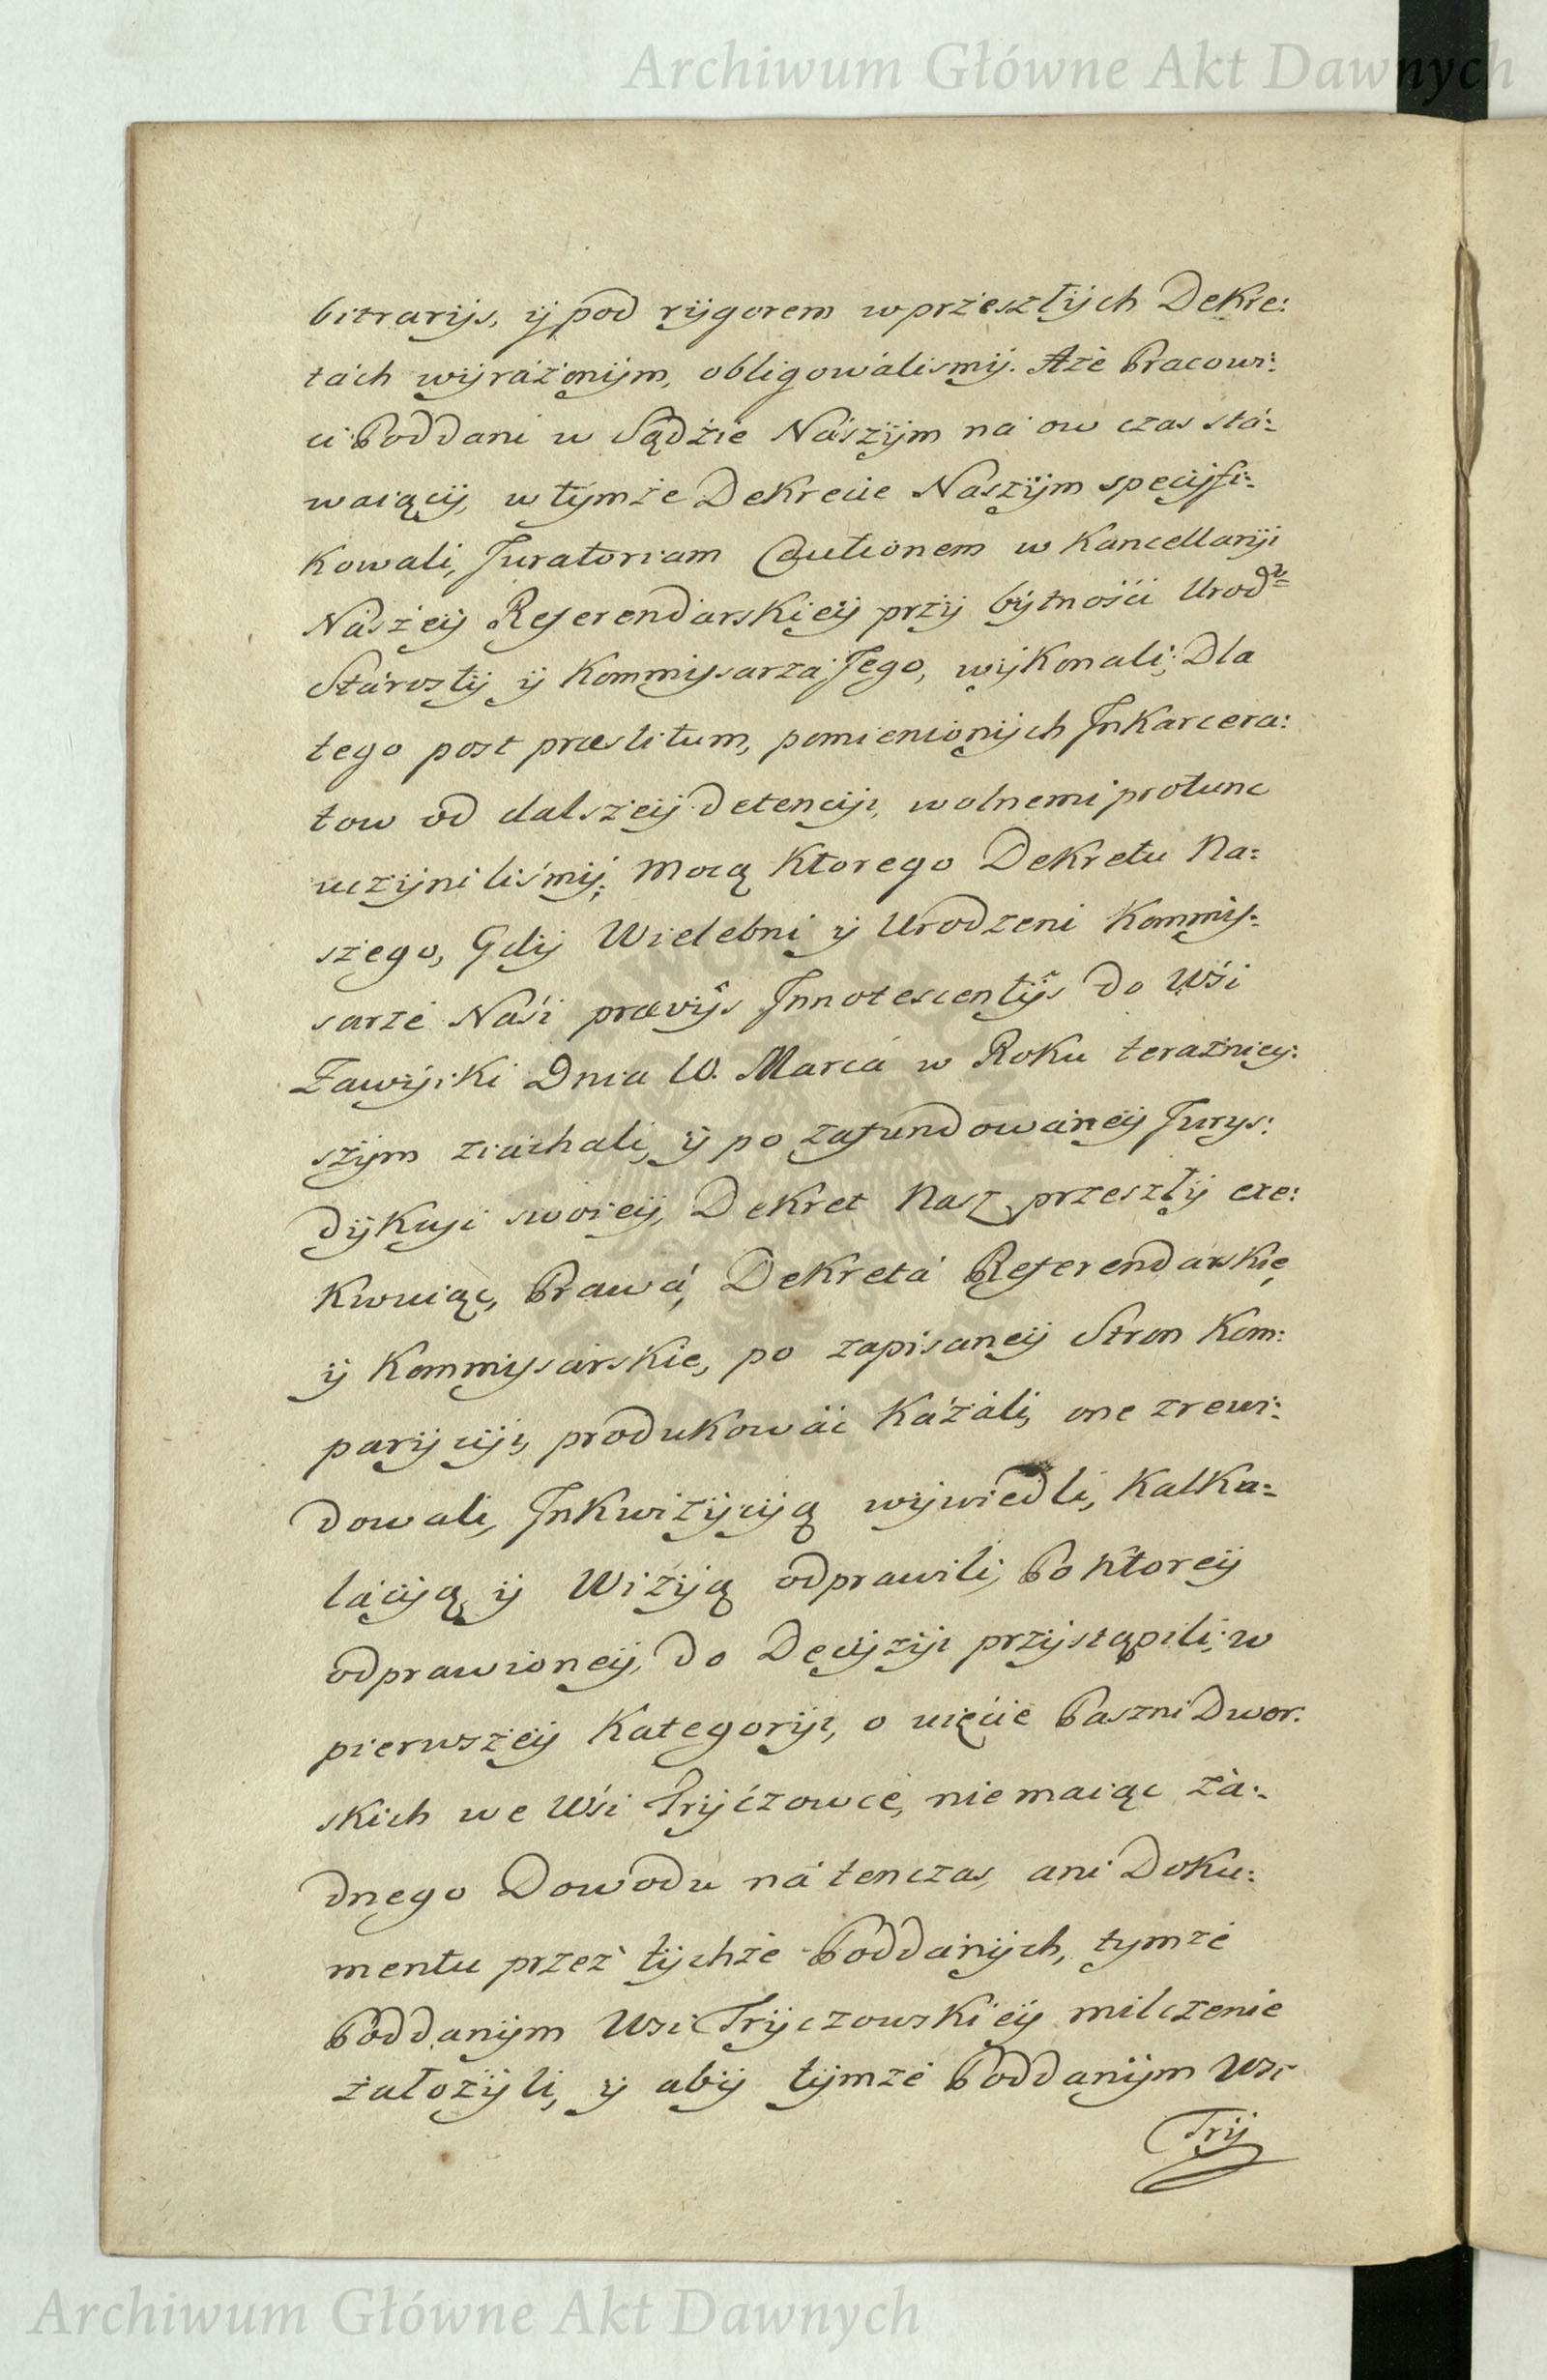 Archiwum Główne Akt Dawnych
bitrarijs, ij pod rijgorem w przeszłijch Dekre:
tách wijrażonijm, obligowáliśmij. Aże Pracowi:
ci Poddani w Sądźie Nászijm ná ow czas stá:
waiącij, w tymże Dekrecie Naszijm specijfi:
kowali, Juratoriam Cautionem w Kancellariji
Nászeij Referendarskieij przij bijtnośći Urodz
Stárostij ij Kommissarza Jego, wijkonali; Dla
tego post præstitum, pomienionijch Inkarcera:
tow od dalszeij detenciji, wolnemi protunc
uczijniliśmij; Mocą Ktorego Dekretu Na:
szego, Gdij Wielebni ij Urodzeni Kommis:
sarze Náśi prævijs Innotescentijs do Wśi
Zawijski Dnia 10. Marca w Roku teraźniey:
szijm ziáchali, ij po zafundowáneij Jurys:
dijkcyi swoieij, Dekret Nasz przeszłij exe:
kwuiąc, Prawá, Dekretá Referendarskie
ij Kommissárskie, po zapisaneij Stron Kom:
parijciji, produkowáć kázáli, one zrewi:
dowali, Inkwizijciją wijwiedli, Kalku:
láciją ij Wiziją odprawili, Po ktoreij
odprawioneij, do Decijziji przijstąpili; w
pierwszeij Kategoriji, o uięćie Paszni Dwor:
skich we Wśi Trijczowce, nie maiąc żá:
dnego Dowodu ná tenczas, ani Doku:
mentu przez tijchże Poddánijch, tymże
Poddanijm Wsi Trijczowskieij milczenie
założijli, ij abij tijmże Poddanijm Wsi
Trij
Archiwum Główne Akt Dawnych